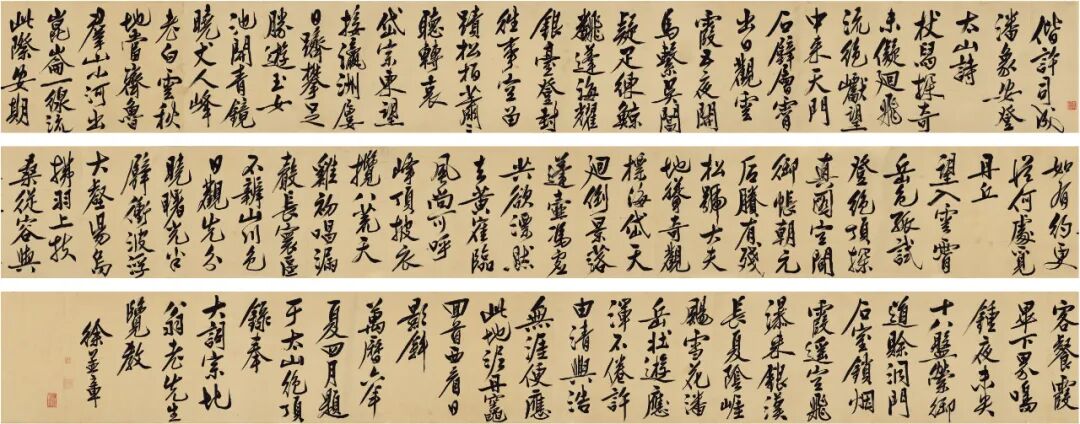 偕許司成
潘象安登
太山詩
杖舄探奇
未儗迴飛
流絕巘望
中来天門
石壁層霄
出日觀雲
霞五夜開
馬繫吳閶
疑疋練鯨
飜蓬海耀
銀臺登封
往事空留
蹟松柏蕭〻
聽轉哀
岱宗東望
接瀛洲屢
日躋攀足
勝遊玉女
池開青鏡
曉丈人峰
老白雲秋
地當齊魯
羣山小河出
崑崙一線流
此際安期
如有約更
從何處覓
丹丘
望入雲霄
岳色孤試
登絕頂探
真圖空聞
御帳朝元
后賸有殘
松號大夫
地聳奇觀
標海岱天
迴倒景落
蓬壺馮虛
共欲漂然
去黄隺臨
風尚可呼
峰頂披衣
攬八荒天
雞初唱漏
聲長寰區
不辨山川色
日觀先分
曉曙光半
壁衝波浮
大壑陽烏
拂羽上扶
桑從容與
客餐霞
畢下界鳴
鍾夜未央
十八盤縈御
道賒洞門
石室鎖烟
霞遥空飛
瀑来銀漢
長夏陰崖
賜雪花潘
岳壮遊應
渾不倦許
由清興浩
無涯便應
此地泥丹竈
回首西看日
影斜
萬曆六年
夏四月題
于太山絕頂
錄奉
大詞宗地
翁老先生
覽教
徐章